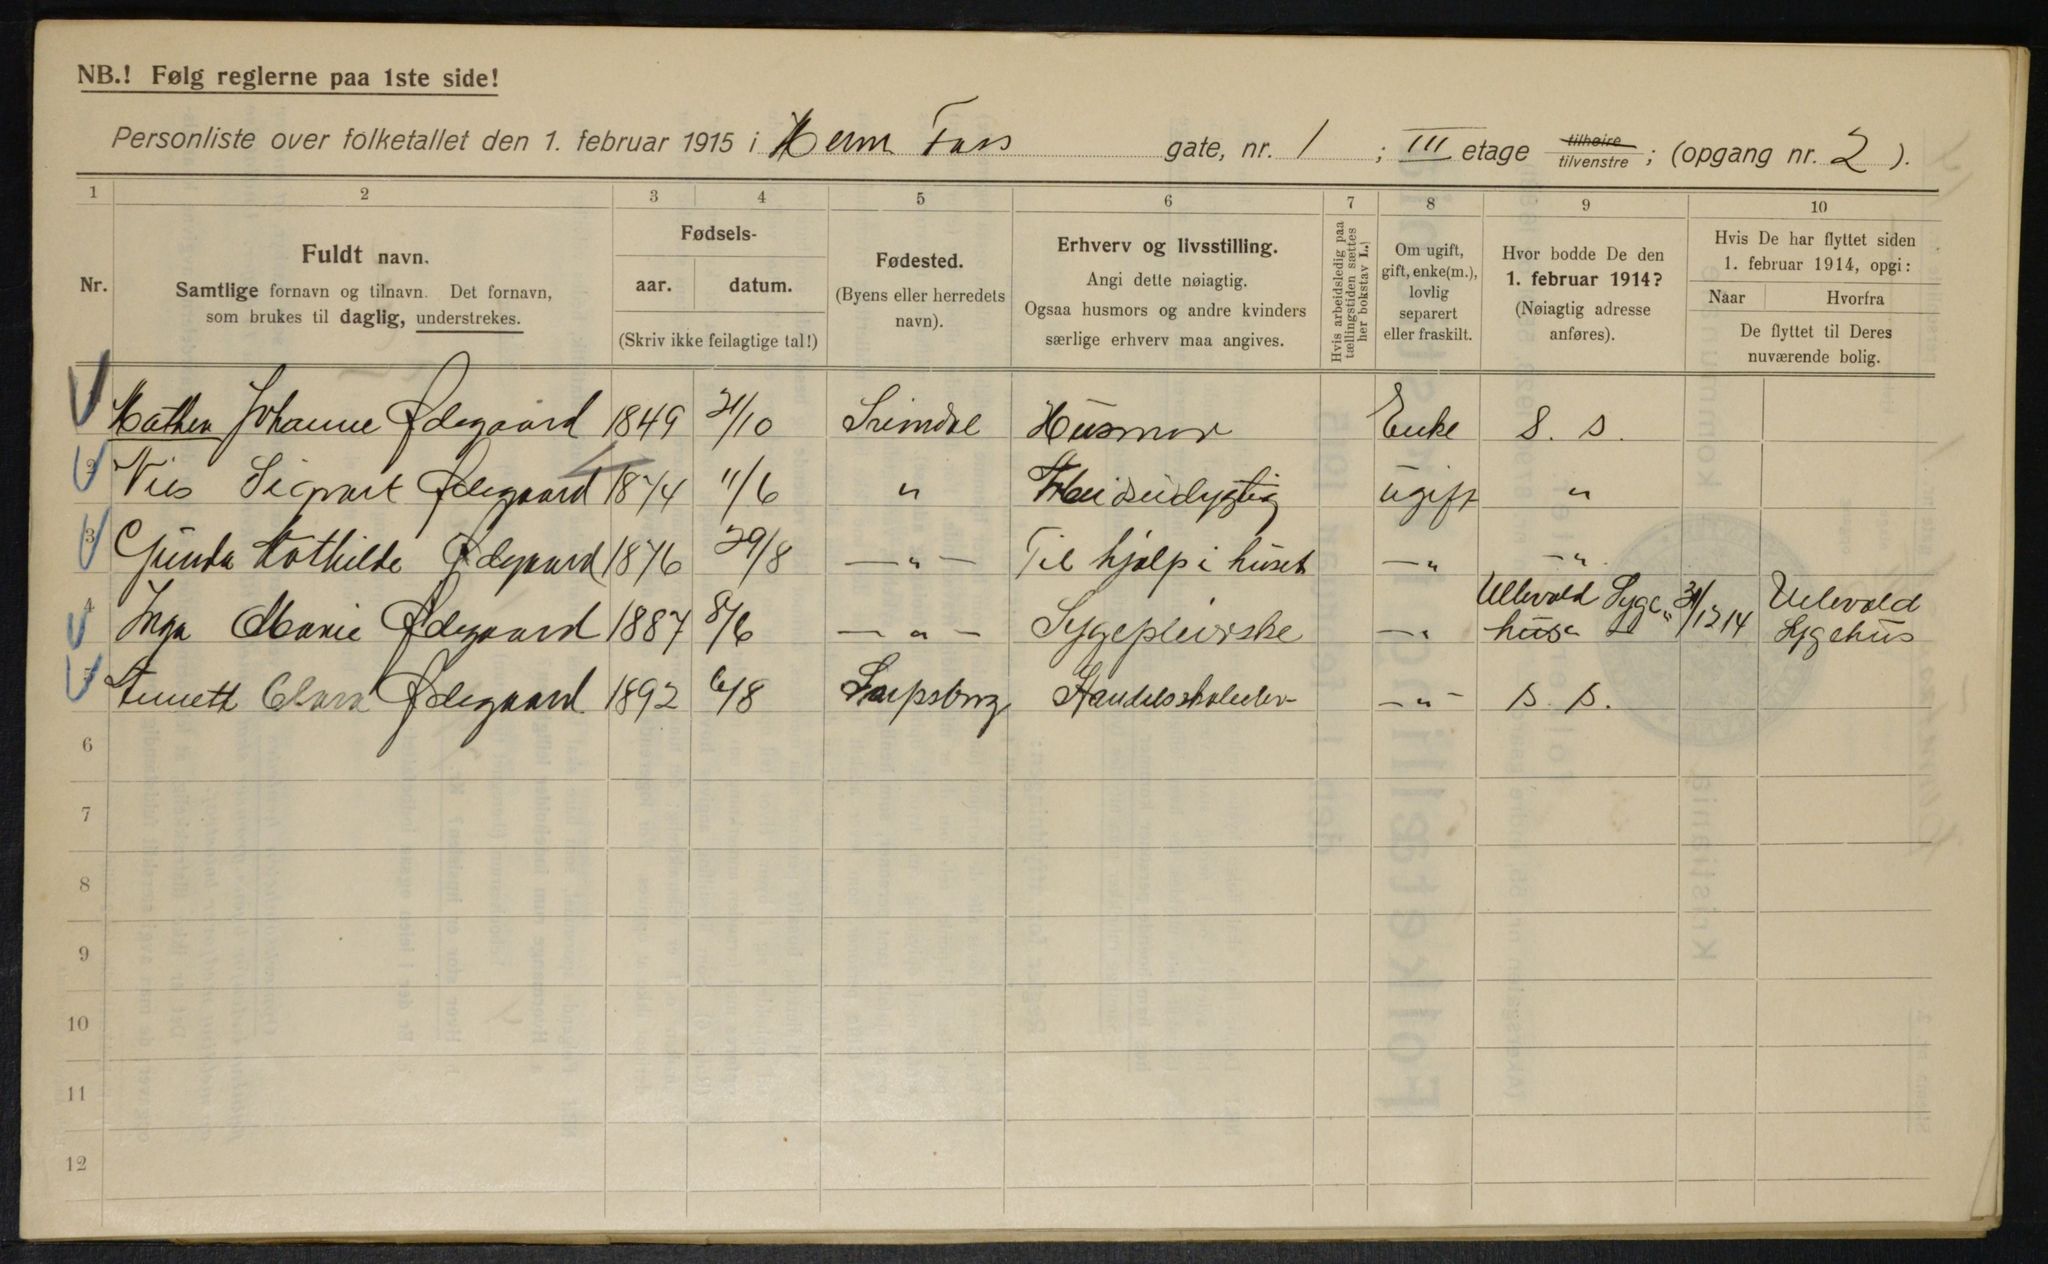 NB.! Følg reglerne paa 1ste side!
Personliste over folketallet den 1. februar 1915 i Herm Foss gate, nr. 1 ; III etage tilhøire tilvenstre ; (opgang nr. 2 ).
1 2 3 4 5 6 7 8 9 10
Nr.
Fuldt navn.
Samtlige fornavn og tilnavn. Det fornavn,
som brukes til daglig, understrekes.
Fødsels-
aar. datum.
(Skriv ikke feilagtige tal!)
Fødested.
(Byens eller herredets
navn).
Erhverv og livsstilling.
Angi dette nøiagtig.
Ogsaa husmors og andre kvinders
særlige erhverv maa angives.
Hvis arbeidsledig paa
tællingstiden sættes
her bokstav L.
Om ugift,
gift, enke(m.),
lovlig
separert
eller fraskilt.
Hvor bodde De den
1. februar 1914?
(Nøiagtig adresse
anføres).
Hvis De har flyttet siden
1. februar 1914, opgi:
Naar Hvorfra
De flyttet til Deres
nuværende bolig.
Mathea Johanne Ødegaard 1849 21/10 Husmor Enke S. s.
2 Nils Sigvart Ødegaard 1874 11/6 " Arbeidsudygtig ugift "
3 Gunda Mathilde Ødegaard 1876 29/8 — " — Til hjelp i huset — " — "
4 Inga Marie Ødegaard 1887 8/6 — " — Sygepleierske — " Ullevold Syge hus 31/12 14 Ullevold Sygehus
5 Clara Ødegaard 1892 6/8 Sarpsborg Handelsskoleelev — " — s. s.
6
7
8
9
10
11
12